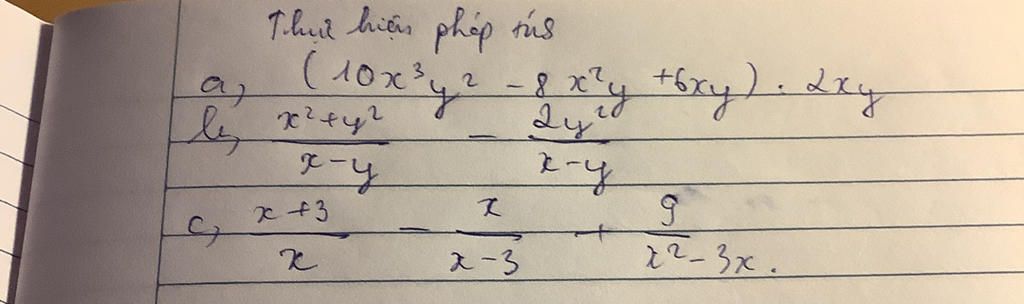 Thực hiện phép tính
a, (10x³y² - 8x²y + 6xy) : 2xy
b, \frac{x²+y²}{x-y} - \frac{2y²}{x-y}
c, \frac{x+3}{x} - \frac{x}{x-3} + \frac{9}{x²-3x}.